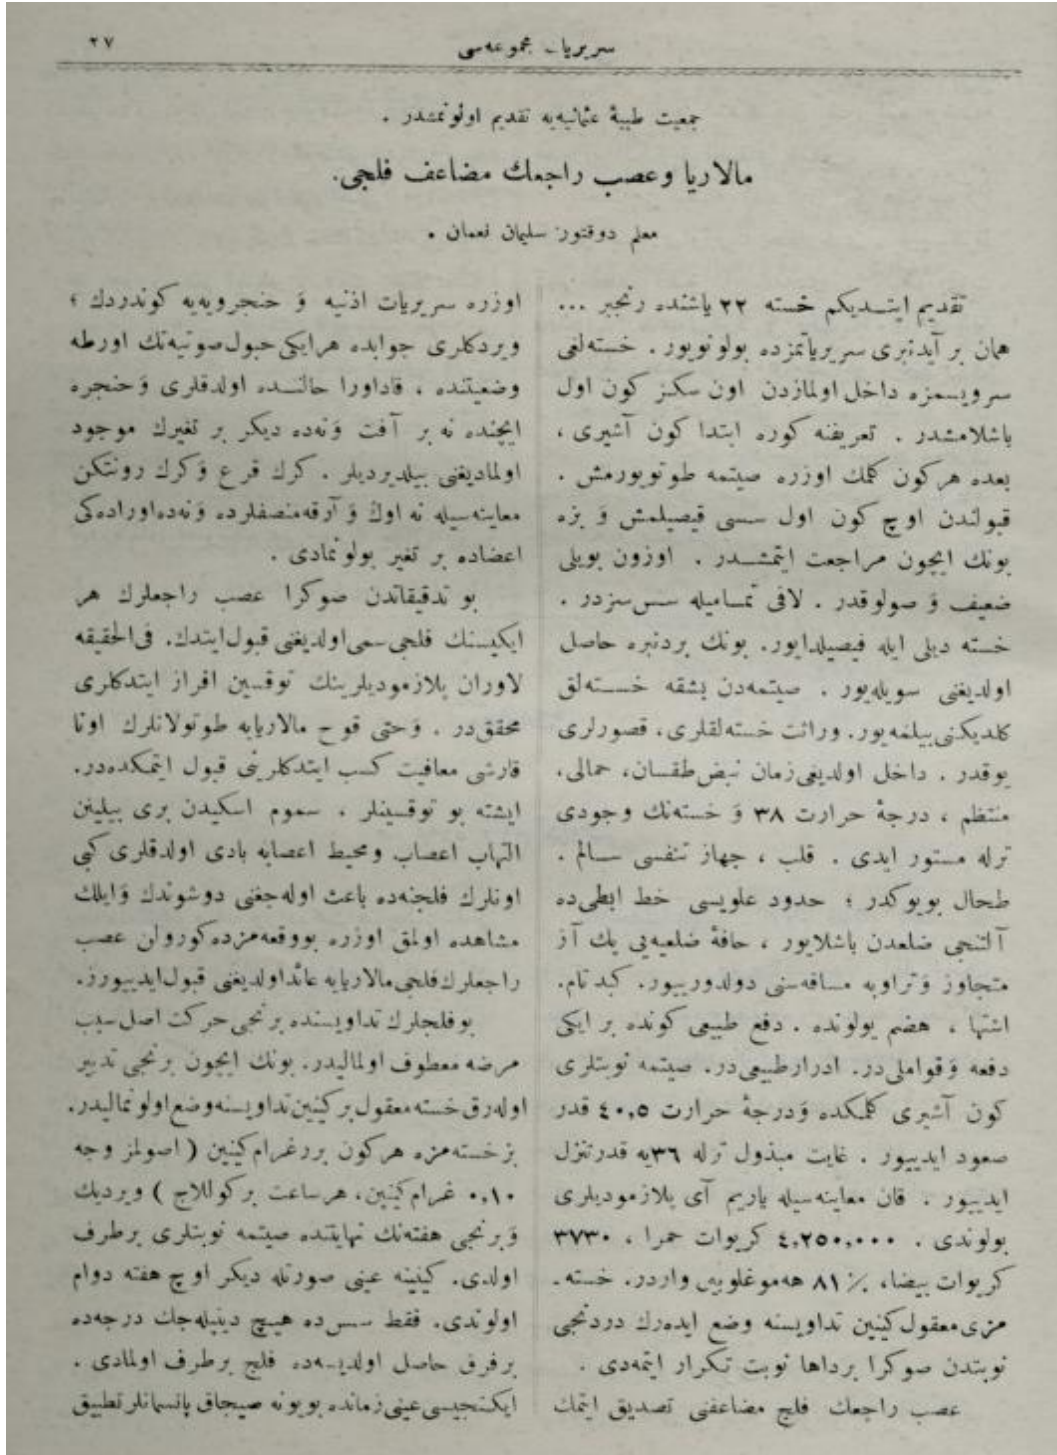 سريريات مجموعه‌سى
٢٧
جمعيت طبيۀ عثمانيه‌يه تقديم اولونمشدر .
مالاريا وعصب راجعك مضاعف فلجى.
معلم دوقتور: سليمان نعمان .
تقديم ايتــديكم خسته ٢٢ ياشنده رنجبر ...
همان بر آيدنبرى سريرياتمزده بولونويور . خسته‌لغى
سرويسمزه داخل اولمازدن اون سكز كون اول
باشلامشدر . تعريفنه كوره ابتدا كون آشيرى ،
بعده هركون كلمك اوزره صيتمه طوتويورمش .
قبولندن اوچ كون اول سسى قيصيلمش وَ بزه
بونك ايچون مراجعت ايتمشــدر . اوزون بويلى
ضعيف وَ صولوقدر . لافى تمــاميله سس‌سزدر .
خسته ديلى ايله فيصيلدايور. بونك بردنبره حاصل
اولديغنى سويله‌يور . صيتمه‌دن بشقه خســته‌لق
كلديكنى بيلمه‌يور. وراثت خسته‌لقلرى، قصورلرى
يوقدر . داخل اولديغى زمان نبض طقسان، حمالى،
منتظم ، درجۀ حرارت ٣٨ وَ خسته‌نك وجودى
ترله مستور ايدى . قلب ، جهاز تنفسى ســالم .
طحال بويوكدر ؛ حدود علويسى خط ابطى‌ده
آلتنجى ضلعدن باشلايور ، حافۀ ضلعيه‌يى پك آز
متجاوز وَ تراوبه مسافه‌سنى دولدورييور. كبد تام.
اشتها ، هضم يولونده . دفع طبيعى كونده بر ايكى
دفعه وَ قواملى‌در. ادرار طبيعى‌در. صيتمه نوبتلرى
كون آشيرى كلمكده وَ درجۀ حرارت ٤٠,٥ قدر
صعود ايدييور . غايت مبذول ترله ٣٦يه قدر تنزل
ايدييور . قان معاينه‌سيله ياريم آى پلازموديلرى
بولوندى . ٤,٢٥٠,٠٠٠ كريوات حمرا ، ٣٧٣٠
كريوات بيضا، ٪ ٨١ هه‌موغلوبين واردر. خسته‌ـ
مزى معقول كينين تداويسنه وضع ايده‌رك دردنجى
نوبتدن صوكرا برداها نوبت تكرار ايتمه‌دى .
عصب راجعك فلج مضاعفنى تصديق ايتمك
اوزره سريريات اذنيه وَ حنجرويه‌يه كوندردك ؛
ويردكلرى جوابده هرايكى حبول صوتيه‌نك اورطه
وضعيتنده ، قاداورا حالنــده اولدقلرى وَ حنجره
ايچنده نه بر آفت وَ نه‌ده ديكر بر تغيرك موجود
اولماديغنى بيلديرديلر . كرك قرع وَ كرك رونتكن
معاينه‌سيله نه اوڭ وَ آرقه منصفلرده وَ نه‌ده اوراده‌كى
اعضاده بر تغير بولونمادى .
بو تدقيقاتدن صوكرا عصب راجعلرك هر
ايكيسنك فلجى سمى اولديغنى قبول ايتدك. فى‌الحقيقه
لاوران پلازموديلرينك توقسين افراز ايتدكلرى
محقق‌در . وَ حتى قوخ مالاريايه طوتولانلرك اوڭا
قارشى معافيت كسب ايتدكلرينى قبول ايتمكده‌در.
ايشته بو توقسينلر ، سموم اسكيدن برى بيلينن
التهاب اعصاب ومحيط اعصابه بادى اولدقلرى كبى
اونلرك فلجنه‌ده باعث اوله‌جغنى دوشوندك وَ ايلك
مشاهده اولمق اوزره بو وقعه‌مزده كورولن عصب
راجعلرك فلجى مالاريايه عائد اولديغنى قبول ايدييورز.
بو فلجلرك تداويسنده برنجى حركت اصل سبب
مرضه معطوف اولماليدر. بونك ايچون برنجى تدبير
اوله‌رق خسته معقول بر كينين تداويسنه وضع اولونماليدر.
بز خسته‌مزه هركون برر غرام كينين ( اصولمز وجه
٠,١٠ غرام كينين، هرساعت بر كوللاچ ) ويرديك
وَ برنجى هفته‌نك نهايتنده صيتمه نوبتلرى برطرف
اولدى. كينينه عينى صورتله ديكر اوچ هفته دوام
اولوندى. فقط سس‌ده هيــچ دينيله‌جك درجه‌ده
برفرق حاصل اولديســه‌ده فلج برطرف اولمادى .
ايكنجيسى عينى زمانده بويونه صيجاق پانسمانلر تطبيق